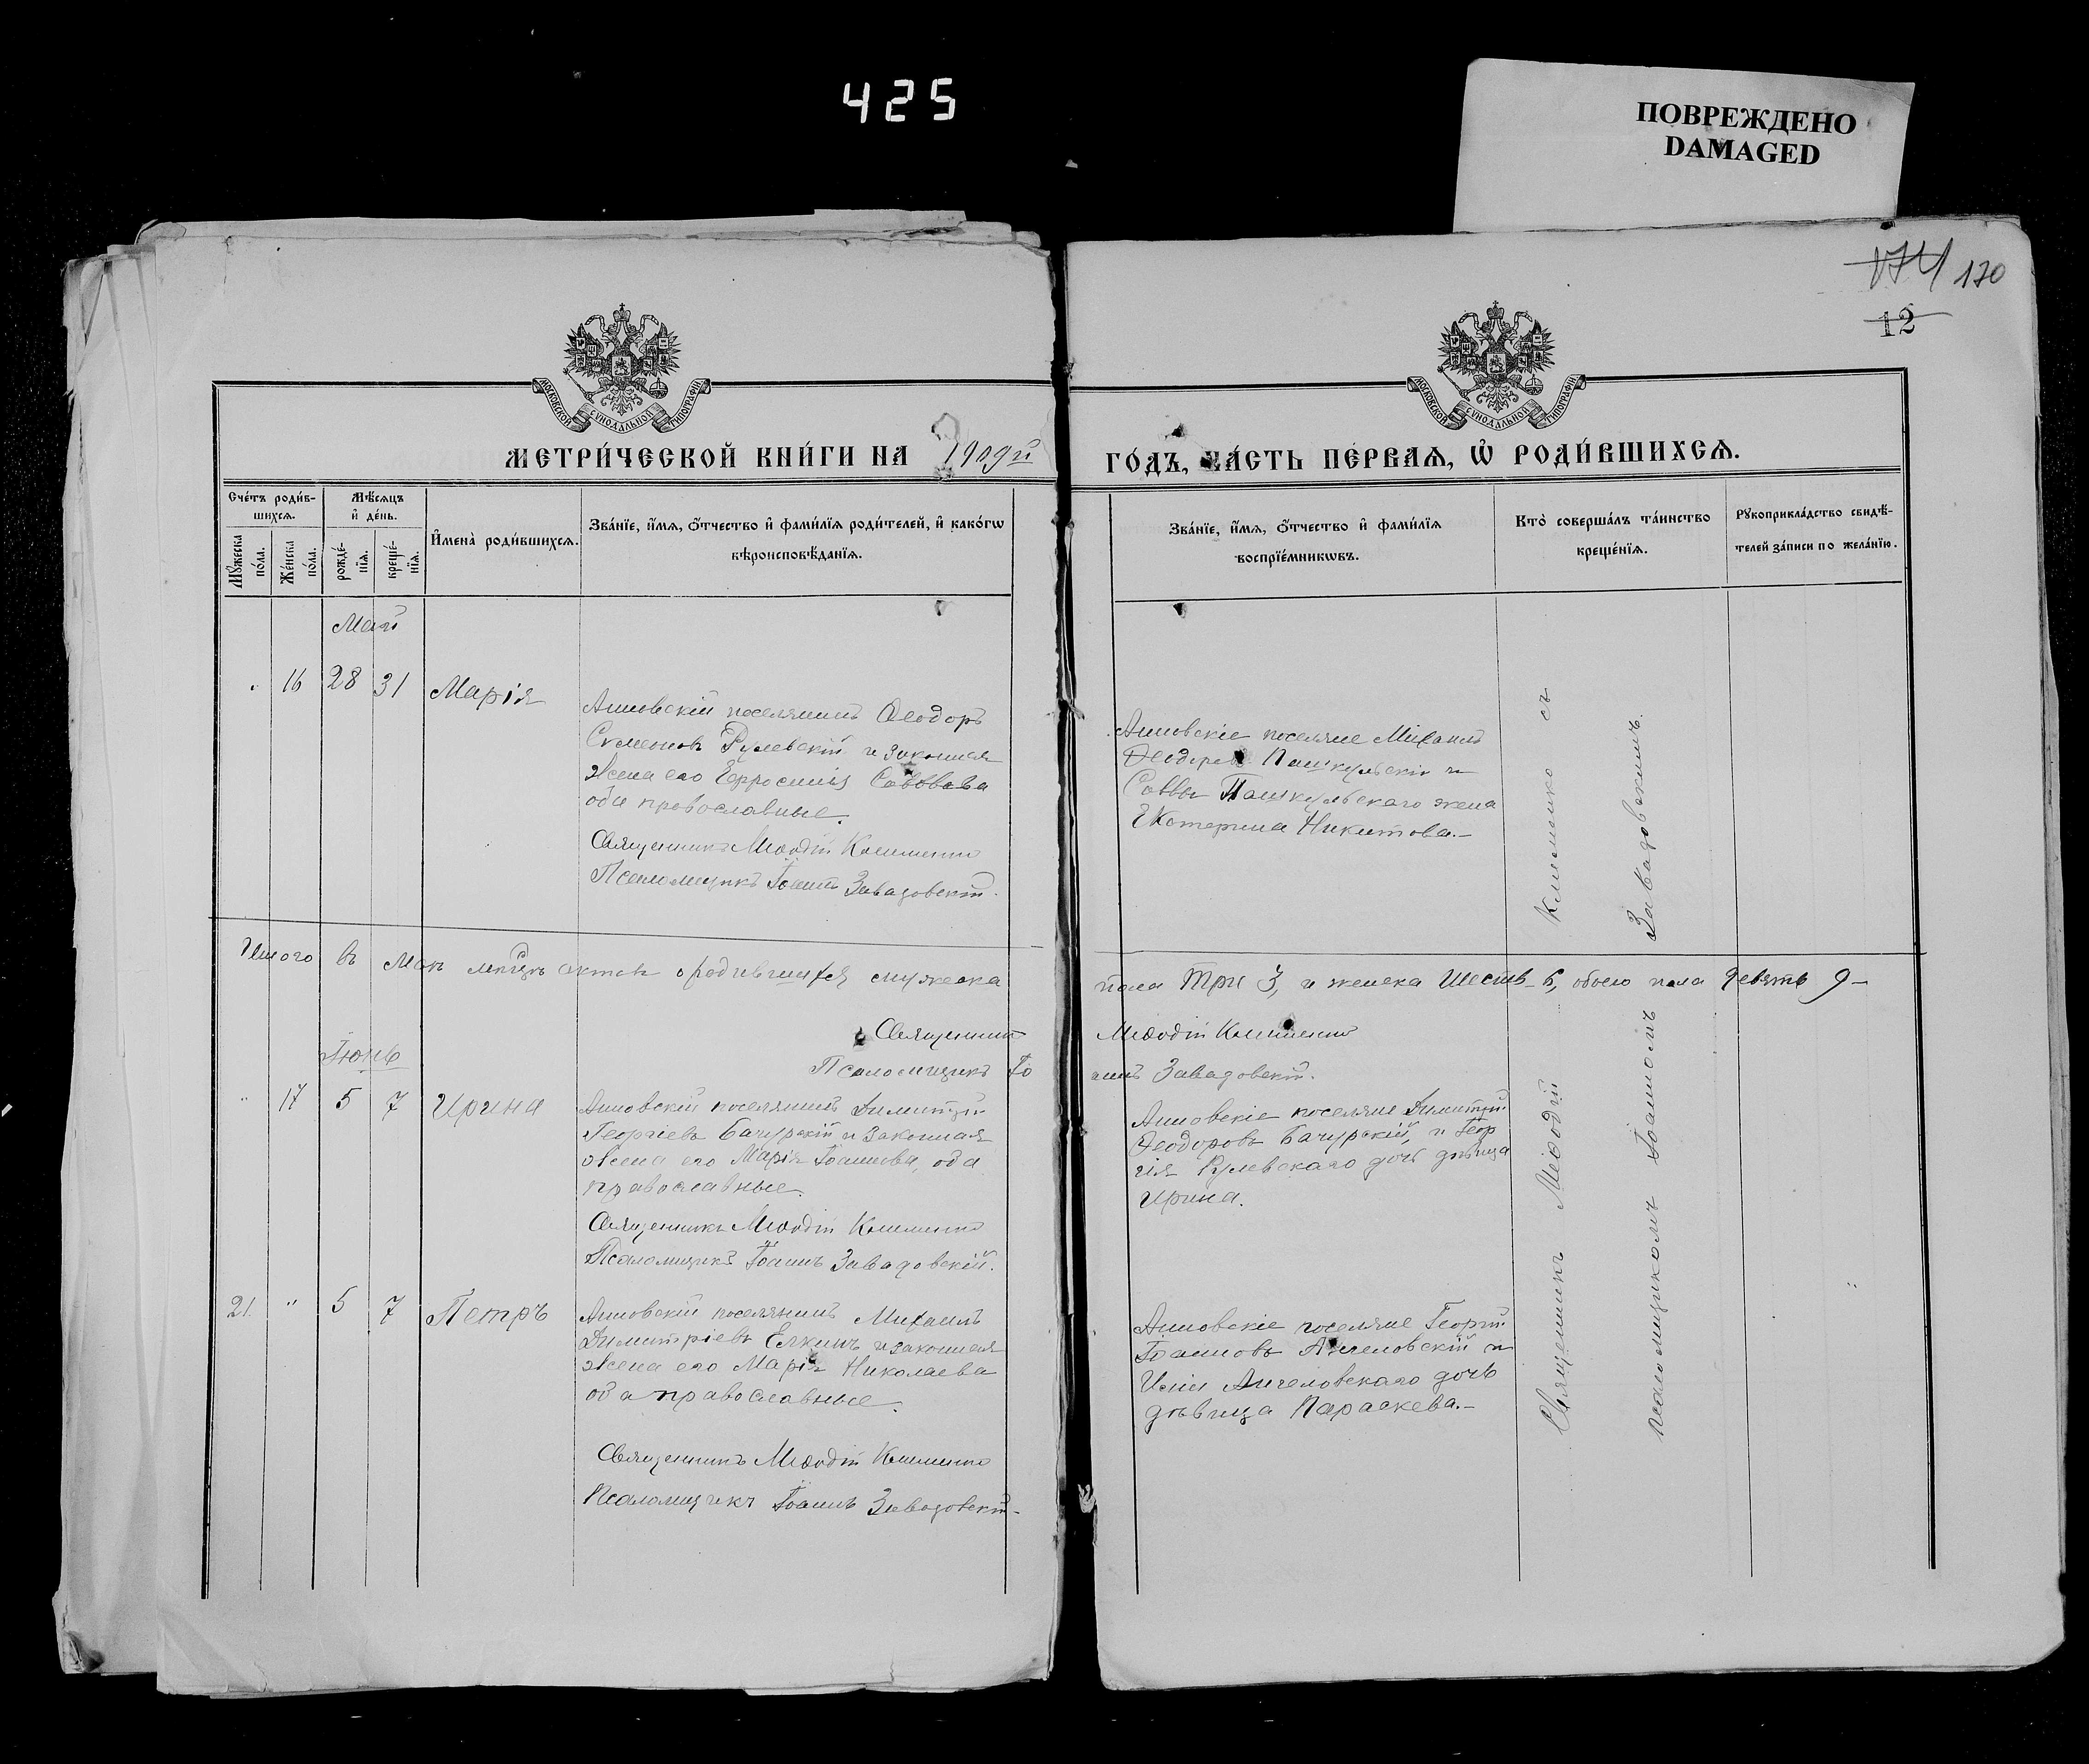 425
ПОВРЕЖДЕНО
DAMAGED
174 170
12
МОСКОВСКОЙ СѴНОДАЛЬНОЙ ТИПОГРАФІИ
МОСКОВСКОЙ СѴНОДАЛЬНОЙ ТИПОГРАФІИ
МЕТРИ́ЧЕСКОЙ КНИ́ГИ НА 1909й
ГО́ДЪ, ЧА́СТЬ ПЕ́РВАѦ, Ѡ҆ РОДИ́ВШИХСѦ.
Сче́тъ роди́в-
шихсѧ.
Мѣ́сѧцъ
и҆ де́нь.
Мꙋ́жеска по́ла.
Же́нска по́ла.
рожде́-
нїѧ.
креще́-
нїѧ.
И҆мена̀ роди́вшихсѧ.
Зва́нїе, и҆́мѧ, ѻ҆́тчество и҆ фами́лїѧ роди́телей, и҆ како́гѡ
вѣроисповѣ́данїѧ.
Зва́нїе, и҆́мѧ, ѻ҆́тчество и҆ фами́лїѧ
воспрїе́мникѡвъ.
Кто̀ соверша́лъ та́инство
креще́нїѧ.
Рꙋкоприкла́дство свидѣ́-
телей за́писи по жела́нїю.
Май
" 16 28 31 Марія
поселянинъ Ѳеодоръ
Симеоновъ Рулевскій и законная
жена его Ефросинія Савовва
оба православные.
Священникъ Меѳодій Клименко
Псаломщикъ Іоаннъ Завадовскій.
поселяне Михаилъ
Ѳеодоровъ Пашкульскій и
Саввы Пашкульскаго жена
Екатерина Никитова.-
Итого въ Маѣ мѣсяцѣ актовъ о родившихся мужеска
пола Три 3, и женска Шесть 6, обоего пола девять 9-
Священникъ Меѳодій Клименко
Псаломщикъ Іоаннъ Завадовскій.
Іюнь
" 17 5 7 Ирина
поселянинъ Димитрій
Георгіевъ Бачурскій и законная
жена его Марія Іоаннова, оба
православные.
Священникъ Меѳодій Клименко
Псаломщикъ Іоаннъ Завадовскій.
поселяне Димитрій
Ѳеодоровъ Бачурскій, и Геор
гія Рулевскаго дочь дѣвица
Ирина.
21. " 5 7 Петръ
поселянинъ Михаилъ
Димитріевъ Елкинъ и законная
жена его Марія Николаева
оба православные.
Священникъ Меѳодій Клименко
Псаломщикъ Іоаннъ Завадовскій-
поселяне Георгій
Іоанновъ Ангеловскій и
Ангеловскаго дочь
дѣвица Параскева.-
Священникъ Меѳодій Клименко съ
псаломщикомъ Іоанномъ Завадовскимъ.